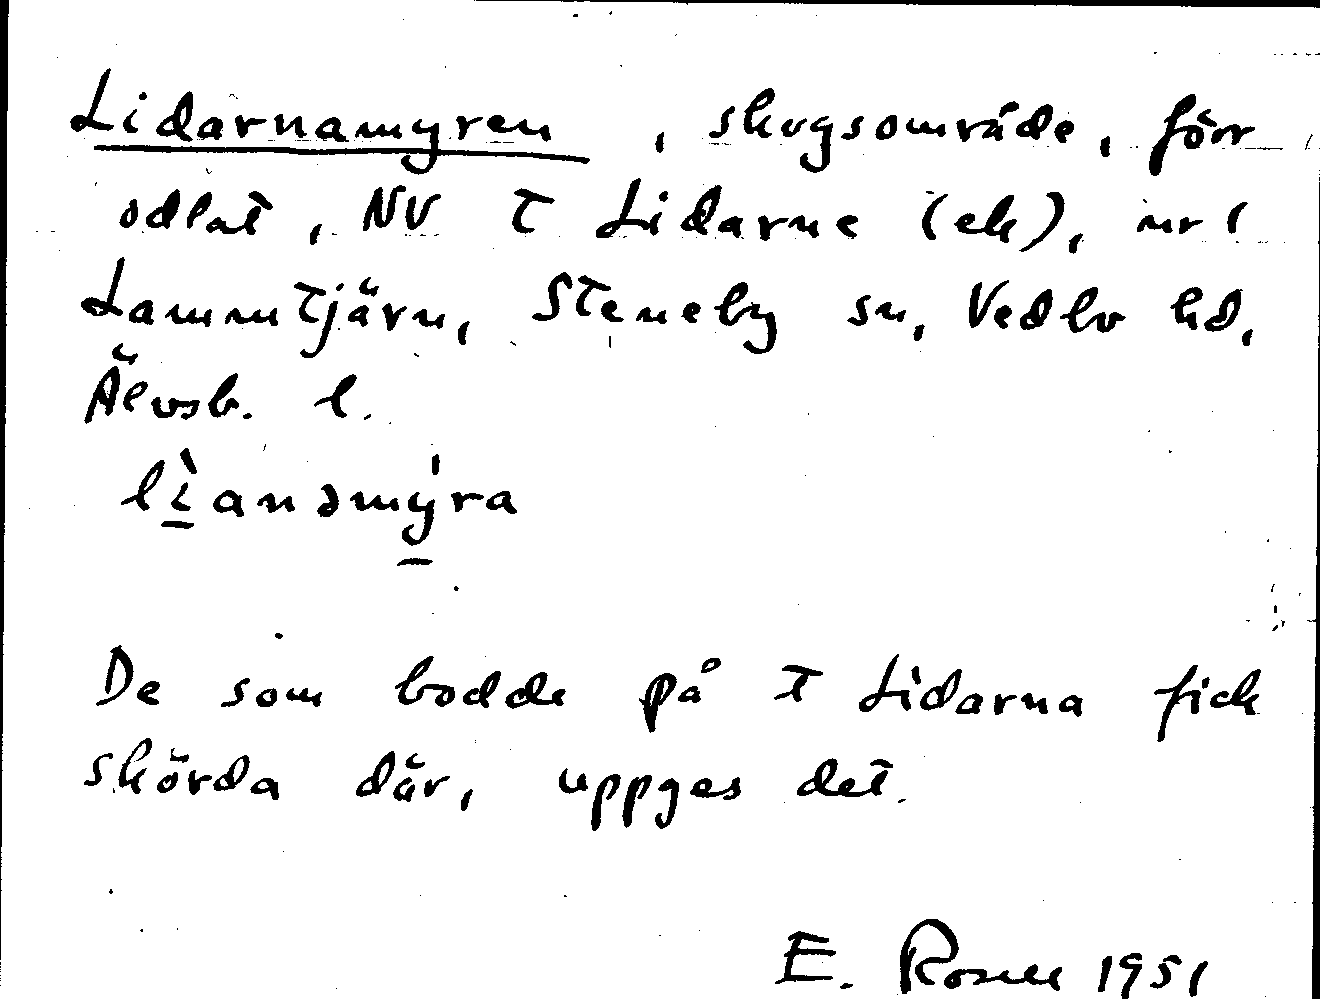 Lidarnamyren, skogsområde, förr
odlat, NV T Lidarne (ek), nr 1
Lammtjärn, Steneby sn, Vedbo hd,
Älvsb. l.
lì̱anəmý̱ra
De som bodde på T Lidarna fick
skörda där, uppges det.
E. Rosell 1951